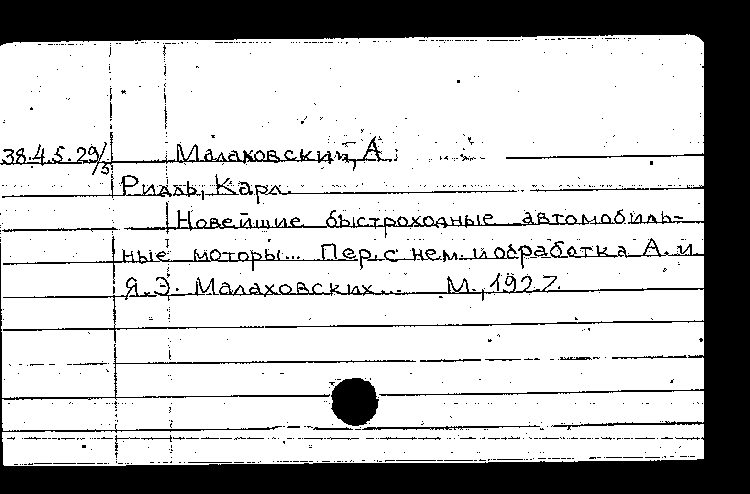 38.4.5.29/5 Малаховский, А.
Риаль, Карл.
Новейшие быстроходные автомобиль-
ные моторы... Пер. с нем. и обработка А. и
Я.Э. Малаховских... М., 1927.